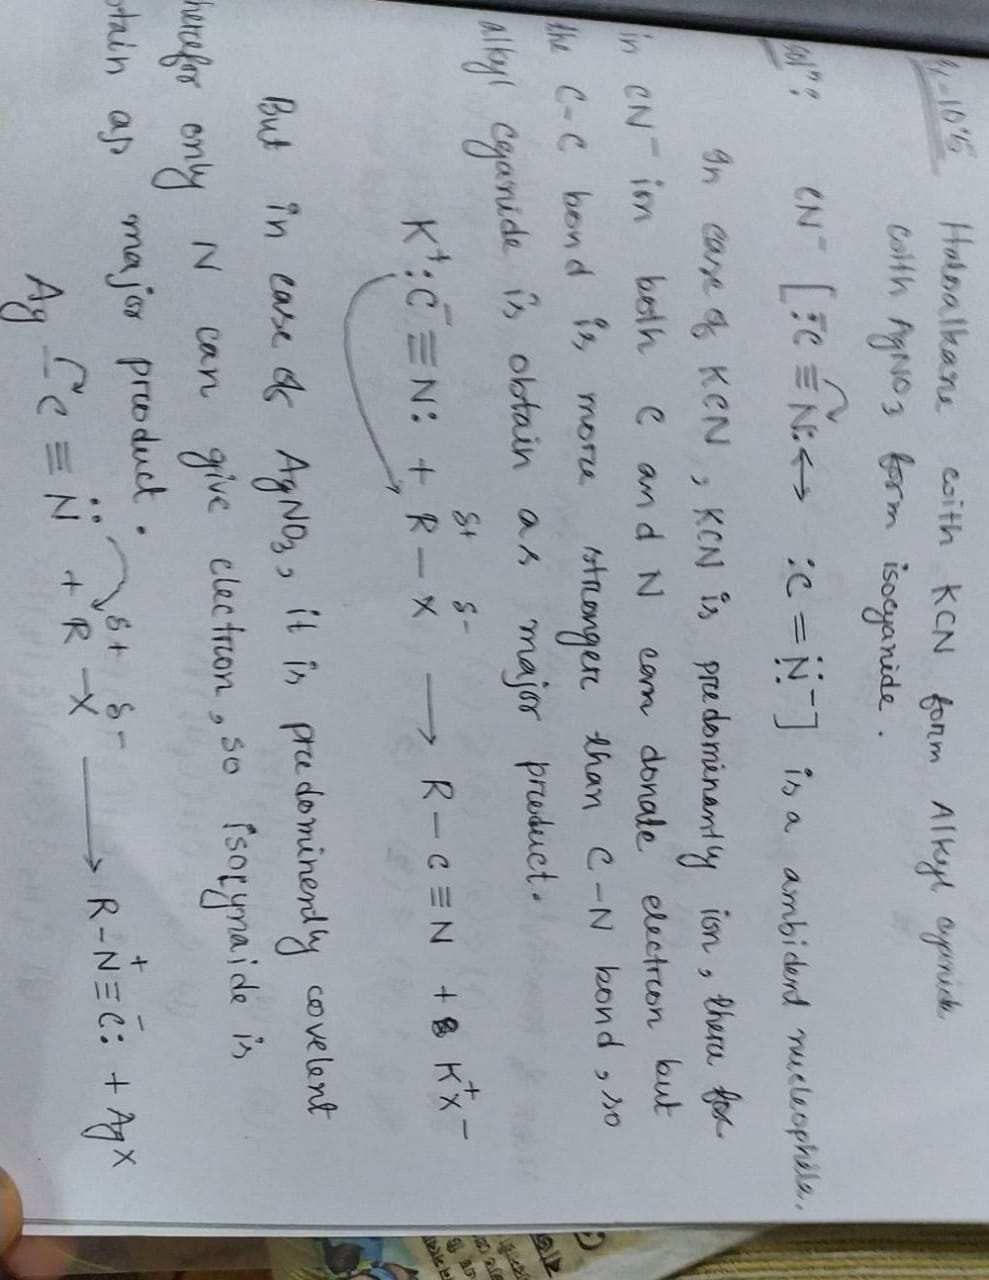 Haloalkane with KCN form Alkyl cyanide
with AgNO3 form isocyanide.
Solⁿ: CN⁻ [:C̄≡N: ↔ :C=N̈:⁻] is a ambidend nucleophile.
In case of KCN, KCN is predominantly ion, there for
in CN⁻ ion both C and N can donate electron but
the C-C bond is more stronger than C-N bond, so
alkyl cyanide is obtain as major product.
δ+ δ-
K⁺:C̄≡N: + R-X → R-C≡N + K⁺X⁻
But in case of AgNO3, it is predominendly covelent
herefor only N can give electron, so isopynaide is
otain as major product.
δ+ δ-
Ag-C≡N̈ + R-X → R-N⁺≡C̄: + AgX